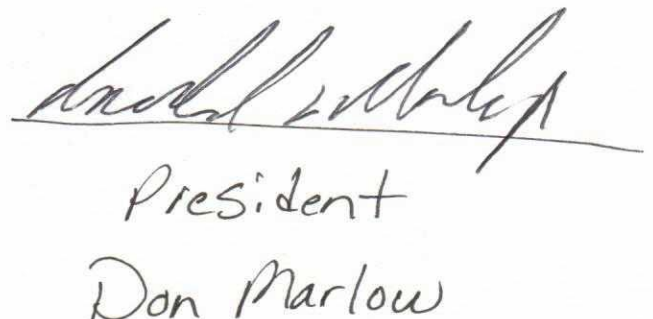 President
Don Marlow